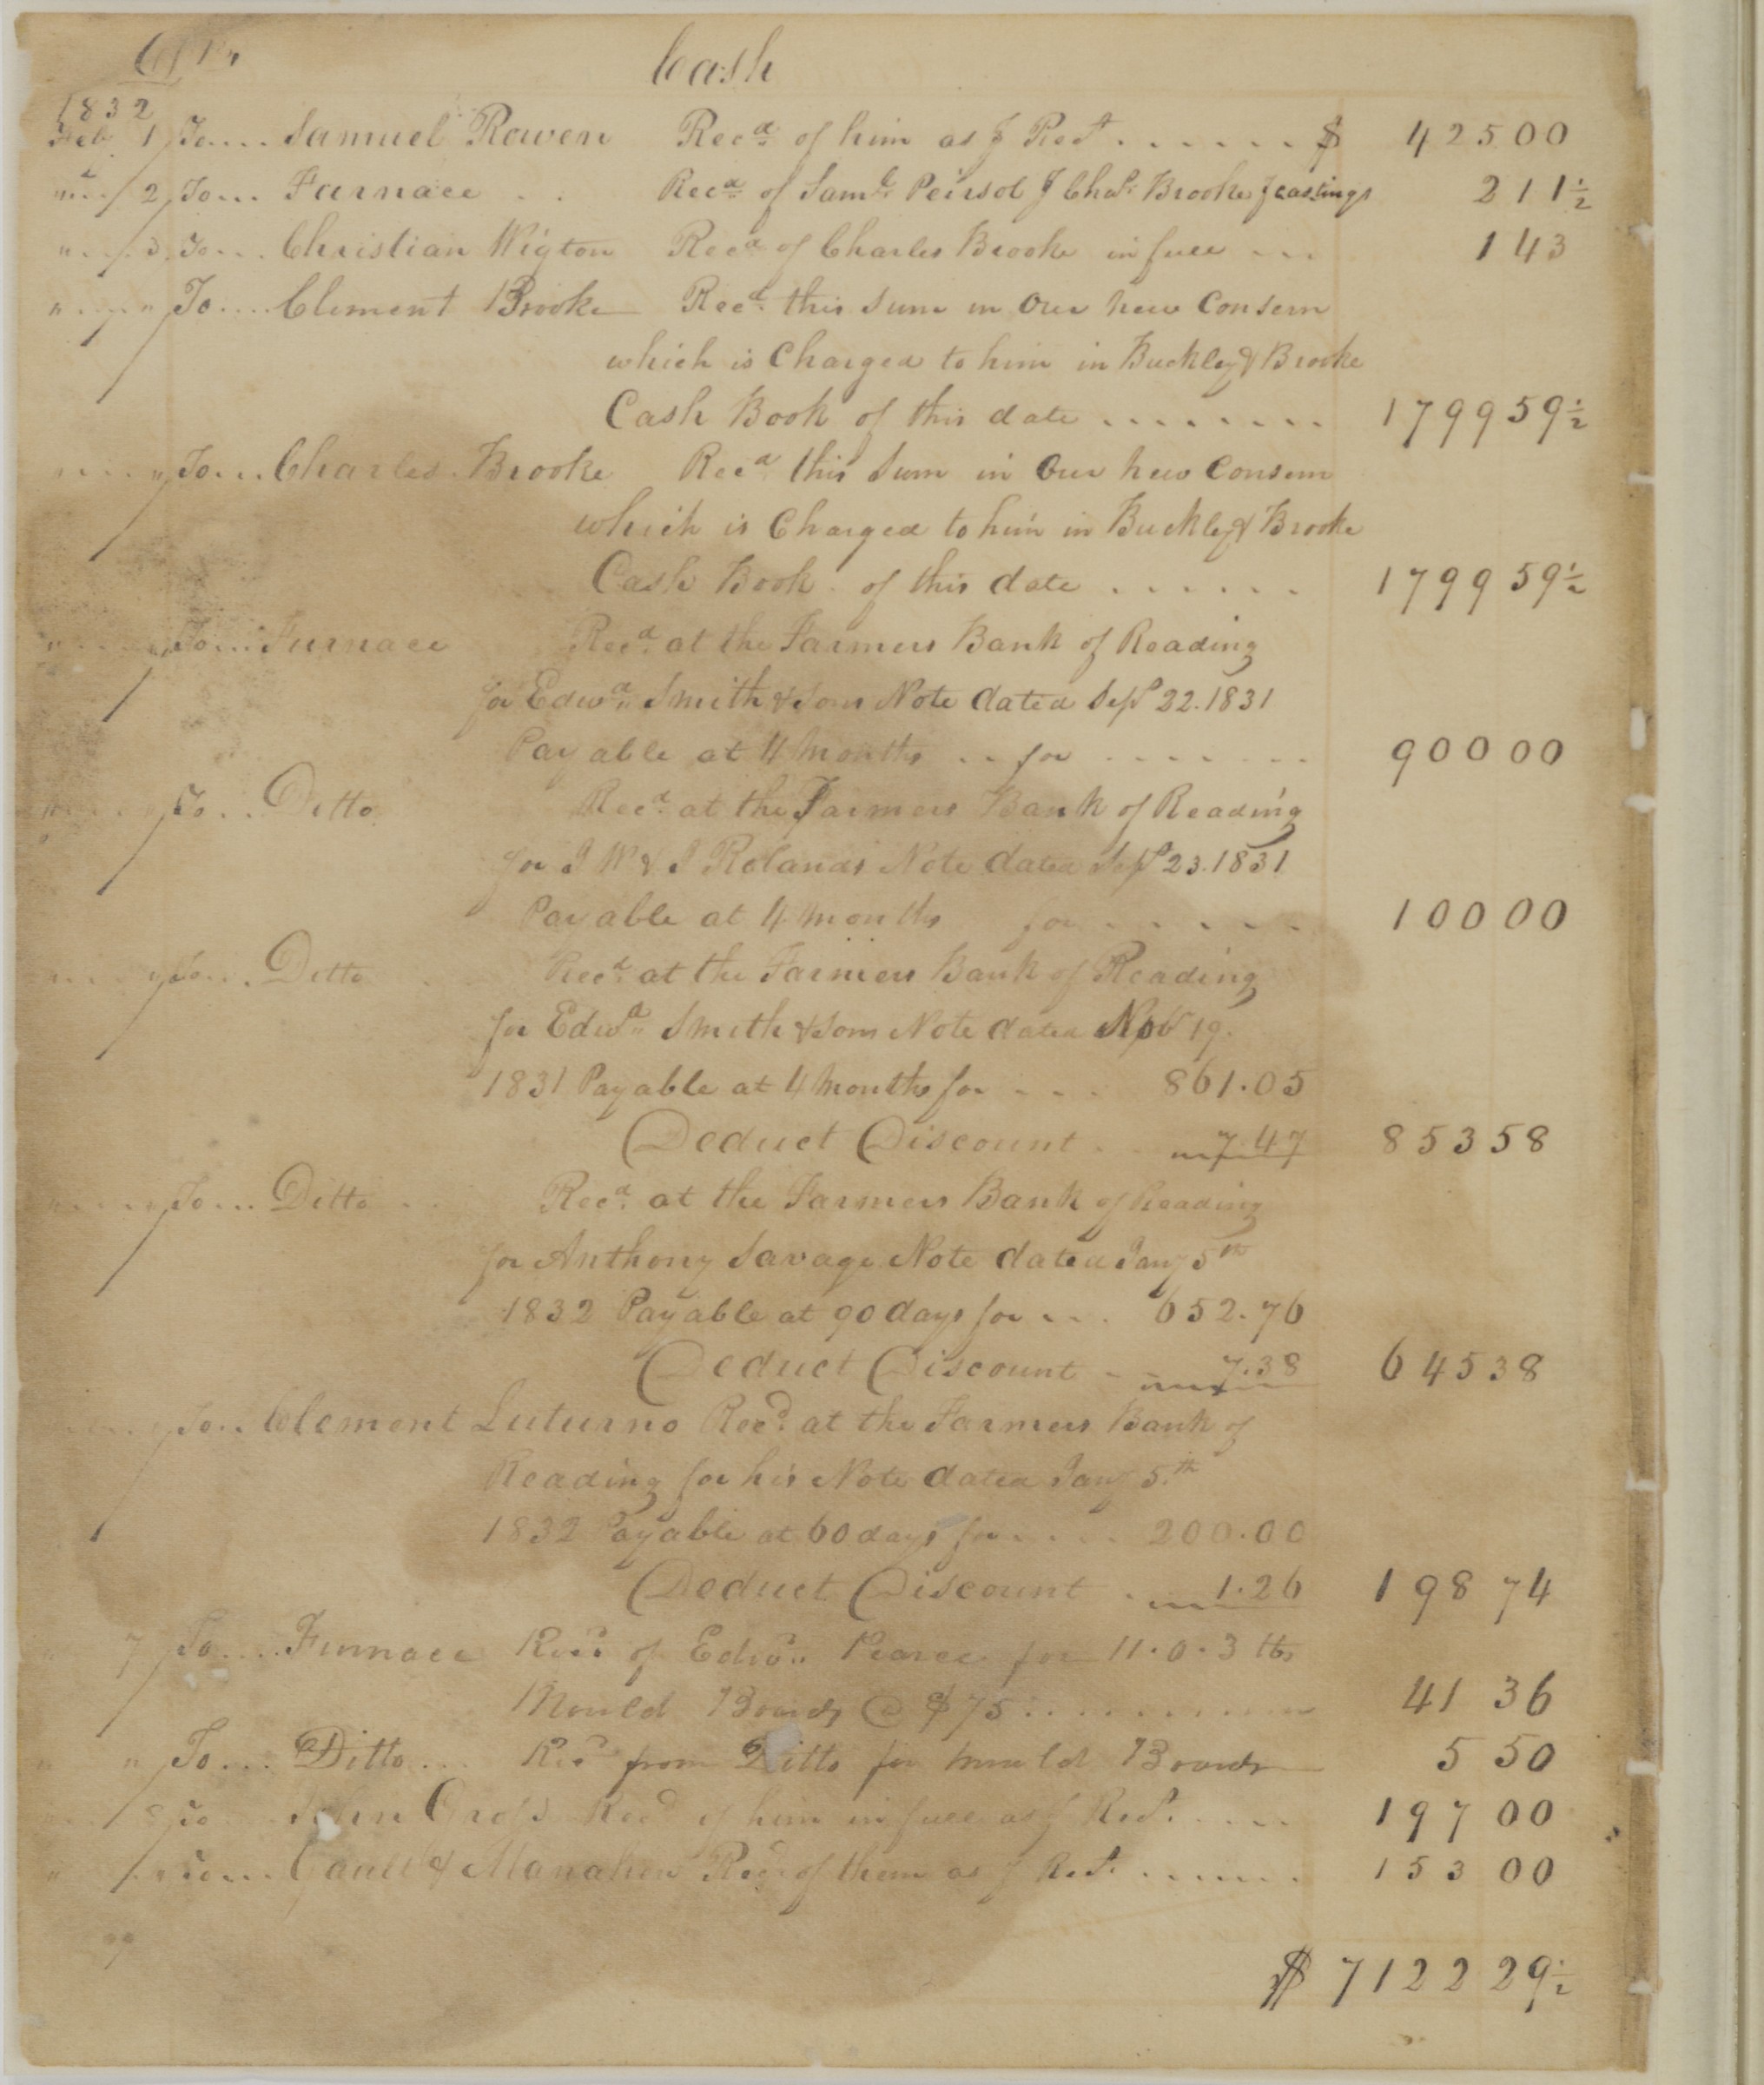 Cash
1832
Feb 1 To.... Samuel Rowen Recd of him as ꝑ Rect ...... $ 425 00
" 2 To... Furnace .. Recd of Saml Peirsol ꝑ Chas. Brooke ꝑ castings 2 11½
" 3 To... Christian Wigton Recd of Charles Brooke in full ... 1 43
" " To.... Clement Brooke Recd this Sum in Our new Consern
which is Charged to him in Buckley & Brooke
Cash Book of this date ........ 1799 59½
" " To... Charles Brooke Recd this Sum in Our new Consern
which is Charged to him in Buckley & Brooke
Cash Book of this date ...... 1799 59½
" " To... Furnace Recd at the Farmers Bank of Reading
for Edwd Smith & Sons Note dated Sept 22. 1831
Payable at 4 Months .. for ...... 900 00
" " To... Ditto Recd at the Farmers Bank of Reading
for J W & J Rolands Note dated Sept 23. 1831
Payable at 4 months for ..... 100 00
" " To... Ditto Recd at the Farmers Bank of Reading
for Edwd Smith & Sons Note dated Novr 19.
1831 Payable at 4 Months for ... 861.05
Deduct Discount .. 7.47 853 58
" " To... Ditto .. Recd at the Farmers Bank of Reading
for Anthony Savage Note dated Jany 5th
1832 Payable at 90 days for ... 652.76
Deduct Discount .. 7.38 645 38
" " To.. Clement Luturno Recd at the Farmers Bank of
Reading for his Note dated Jany 5th
1832 Payable at 60 days for .... 200.00
Deduct Discount . 1.26 198 74
" 7 To.... Furnace Recd of Edwd Pearce for 11.0.3 lbs
Mould Boards @ $75 .......... 41 36
" " To... Ditto... Recd from Ditto for mould Boards 5 50
" 8 To John Gross Recd of him in full as ꝑ Rect. .... 197 00
" " To.... Gault & Monahen Recd of them as ꝑ Rect. ...... 153 00
$ 7122 29½